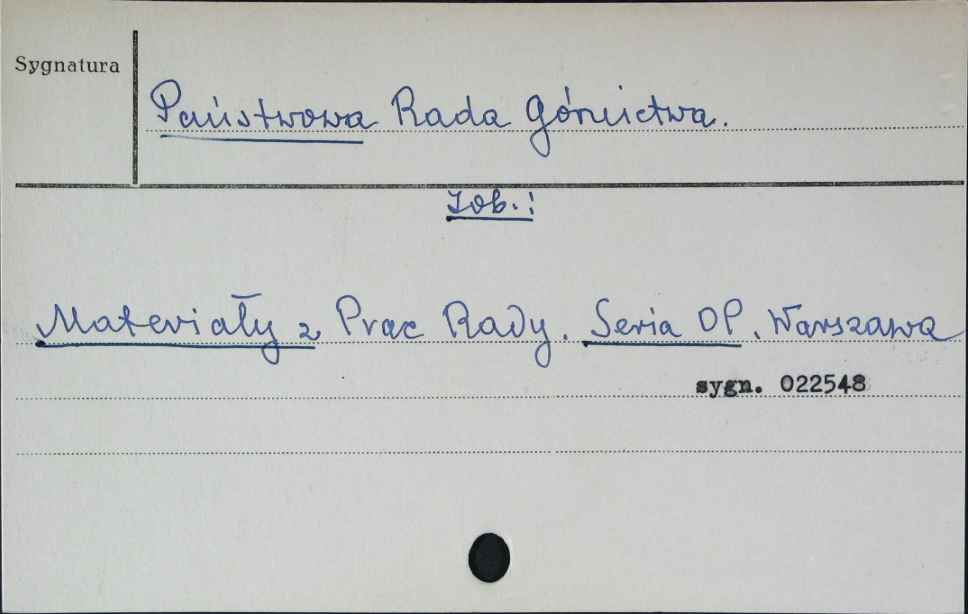 Sygnatura
Państwowa Rada Górnictwa.
Zob.:
Materiały z Prac Rady. Seria OP. Warszawa
sygn. 022548